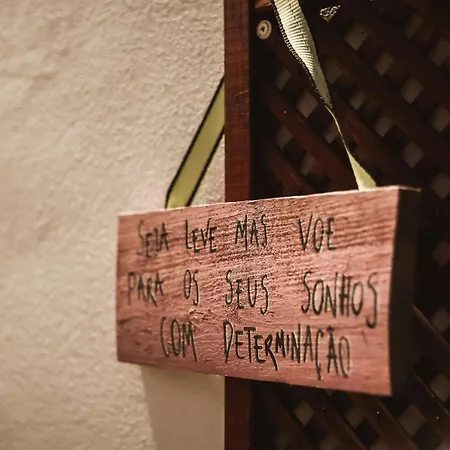 SEJA LEVE MAS VOE
PARA OS SEUS SONHOS
COM DETERMINAÇÃO